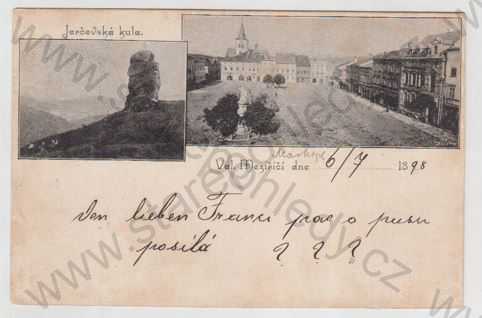 Jarčovská kula.
Val. Meziříčí dne 6/7 1898
Den lieben Franci
posílá ? ? ?
www.stare-pohledy.cz